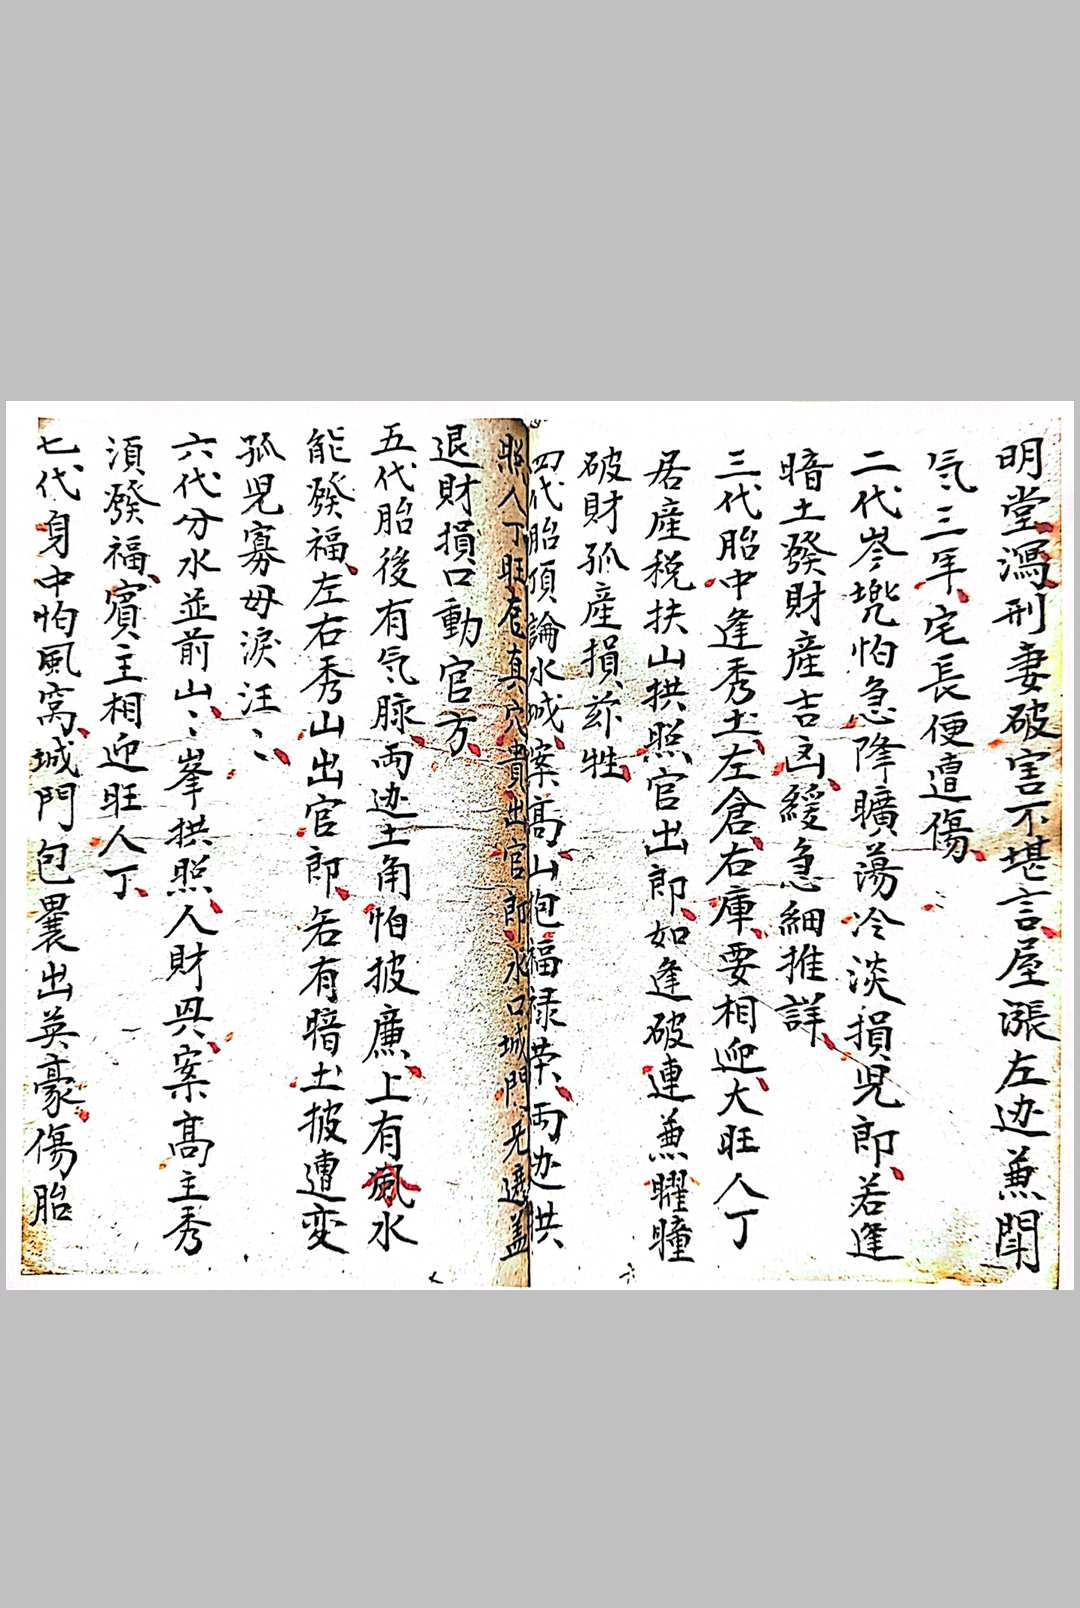 明堂瀉刑妻破害不堪言屋漲左边兼聞
气三年宅長便遭傷
二代岑兠怕急降曠蕩冷淡損児郎若逢
暗土發財産吉凶緩急細推詳
三代胎中逢秀土左倉右庫要相迎大旺人丁
居産税扶山拱照官出郎如逢破連兼矅瞳
破財孤産損茲牲
四代胎頂論水城案高山抱福禄荣両边拱
照人丁旺底真穴貴出官郎水口城門无遮盖
退財損口動官方
五代胎後有气脉両边土角怕披廉上有風水
能發福左右秀山出官郎若有暗土披遭変
孤児寡母淚汪〻
六代分水並前山〻峯拱照人財興案高主秀
須發福賓主相迎旺人丁
七代身中怕風窩城門包裹出英豪傷胎